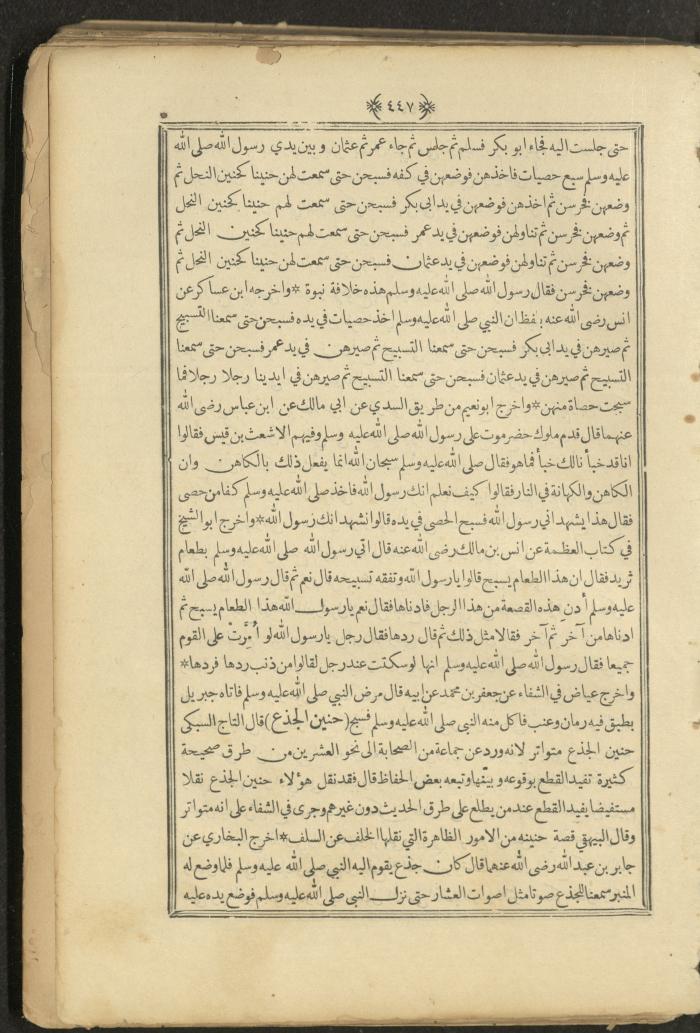 ﴿٤٤٧﴾
حتى جلست اليه فجاء ابو بكر فسلم ثم جلس ثم جاء عمر ثم عثمان وبين يدي رسول الله صلى الله
عليه وسلم سبع حصيات فاخذهن فوضعهن في كفه فسبحن حتى سمعت لهن حنينا كحنين النحل ثم
وضعهن فخرسن ثم اخذهن فوضعهن في يد ابى بكر فسبحن حتى سمعت لهم حنينا كحنين النحل
ثم وضعهن فخرسن ثم تناولهن فوضعهن في يد عمر فسبحن حتى سمعت لهم حنينا كحنين النحل ثم
وضعهن فخرسن ثم تناولهن فوضعهن في يد عثمان فسبحن حتى سمعت لهن حنينا كحنين النحل ثم
وضعهن فخرسن فقال رسول الله صلى الله عليه وسلم هذه خلافة نبوة * واخرجه ابن عساكر عن
انس رضى الله عنه بلفظ ان النبي صلى الله عليه وسلم اخذ حصيات في يده فسبحن حتى سمعنا التسبيح
ثم صيرهن في يد ابى بكر فسبحن حتى سمعنا التسبيح ثم صيرهن في يد عمر فسبحن حتى سمعنا
التسبيح ثم صيرهن في يد عثمان فسبحن حتى سمعنا التسبيح ثم صيرهن في ايدينا رجلا رجلا فما
سبحت حصاة منهن * واخرج ابو نعيم من طريق السدي عن ابي مالك عن ابن عباس رضى الله
عنهما قال قدم ملوك حضرموت على رسول الله صلى الله عليه وسلم وفيهم الاشعث بن قيس فقالوا
انا قد خبأنا لك خبأ فما هو فقال صلى الله عليه وسلم سبحان الله انما يفعل ذلك بالكاهن وان
الكاهن والكهانة في النار فقالوا كيف نعلم انك رسول الله فاخذ صلى الله عليه وسلم كفا من حصى
فقال هذا يشهد اني رسول الله فسبح الحصى في يده قالوا نشهد انك رسول الله * واخرج ابو الشيخ
في كتاب العظمة عن انس بن مالك رضى الله عنه قال اتي رسول الله صلى الله عليه وسلم بطعام
ثريد فقال ان هذا الطعام يسبح قالوا يا رسول الله وتفقه تسبيحه قال نعم ثم قال رسول الله صلى الله
عليه وسلم أدنِ هذه القصعة من هذا الرجل فادناها فقال نعم يا رسول الله هذا الطعام يسبح ثم
ادناها من آخر ثم آخر فقالا مثل ذلك ثم قال ردها فقال رجل يا رسول الله لو أُمِرَّتْ على القوم
جميعا فقال رسول الله صلى الله عليه وسلم انها لو سكتت عند رجل لقالوا من ذنب ردها فردها *
واخرج عياض في الشفاء عن جعفر بن محمد عن ابيه قال مرض النبي صلى الله عليه وسلم فاتاه جبريل
بطبق فيه رمان وعنب فاكل منه النبى صلى الله عليه وسلم فسبح (حنين الجذع) قال التاج السبكى
حنين الجذع متواتر لانه ورد عن جماعة من الصحابة الى نحو العشرين من طرق صحيحة
كثيرة تفيد القطع بوقوعه وبينها وتبعه بعض الحفاظ قال فقد نقل هؤلاء حنين الجذع نقلا
مستفيضا يفيد القطع عند من يطلع على طرق الحديث دون غيرهم وجرى في الشفاء على انه متواتر
وقال البيهقي قصة حنينه من الامور الظاهرة التي نقلها الخلف عن السلف * اخرج البخاري عن
جابر بن عبد الله رضى الله عنهما قال كان جذع يقوم اليه النبي صلى الله عليه وسلم فلما وضع له
المنبر سمعنا للجذع صوتا مثل اصوات العشار حتى نزل النبى صلى الله عليه وسلم فوضع يده عليه